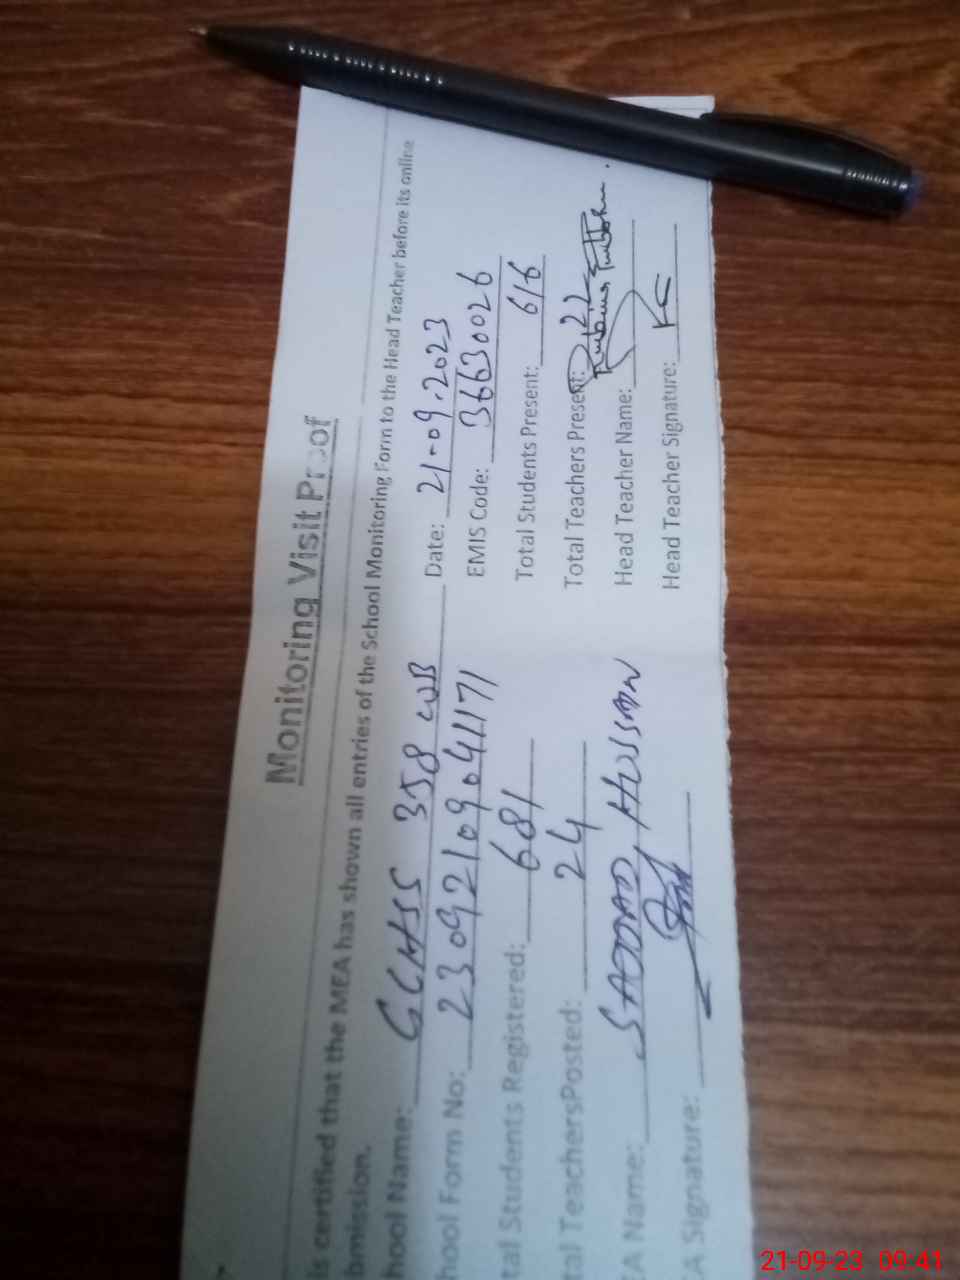 Monitoring Visit Proof
is certified that the MEA has shown all entries of the School Monitoring Form to the Head Teacher before its online
bmission.
hool Name: GGHSS 358 WB Date: 21-09-2023
hool Form No: 23092109041171 EMIS Code: 36630026
tal Students Registered: 681 Total Students Present: 616
tal TeachersPosted: 24 Total Teachers Present: 22
EA Name: SADDAD HUSSAIN Head Teacher Name: Rubina
EA Signature: Head Teacher Signature:
21-09-23 09:41